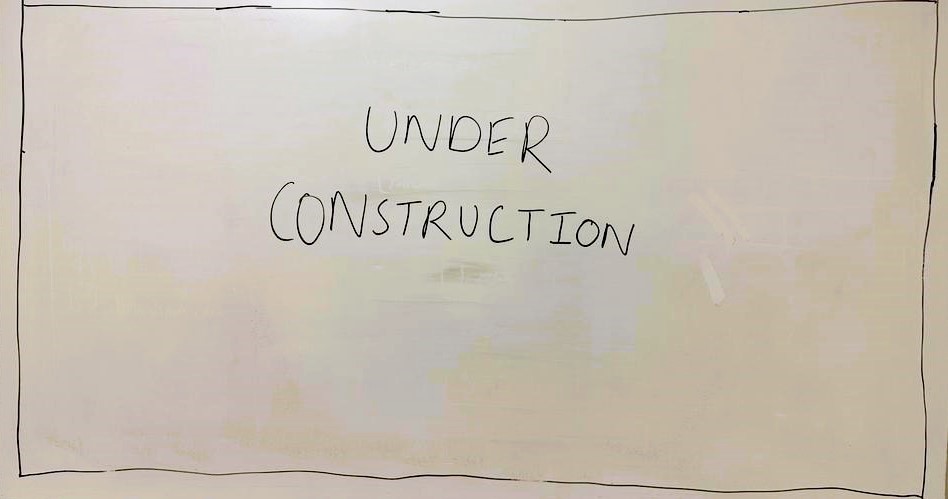 UNDER
CONSTRUCTION